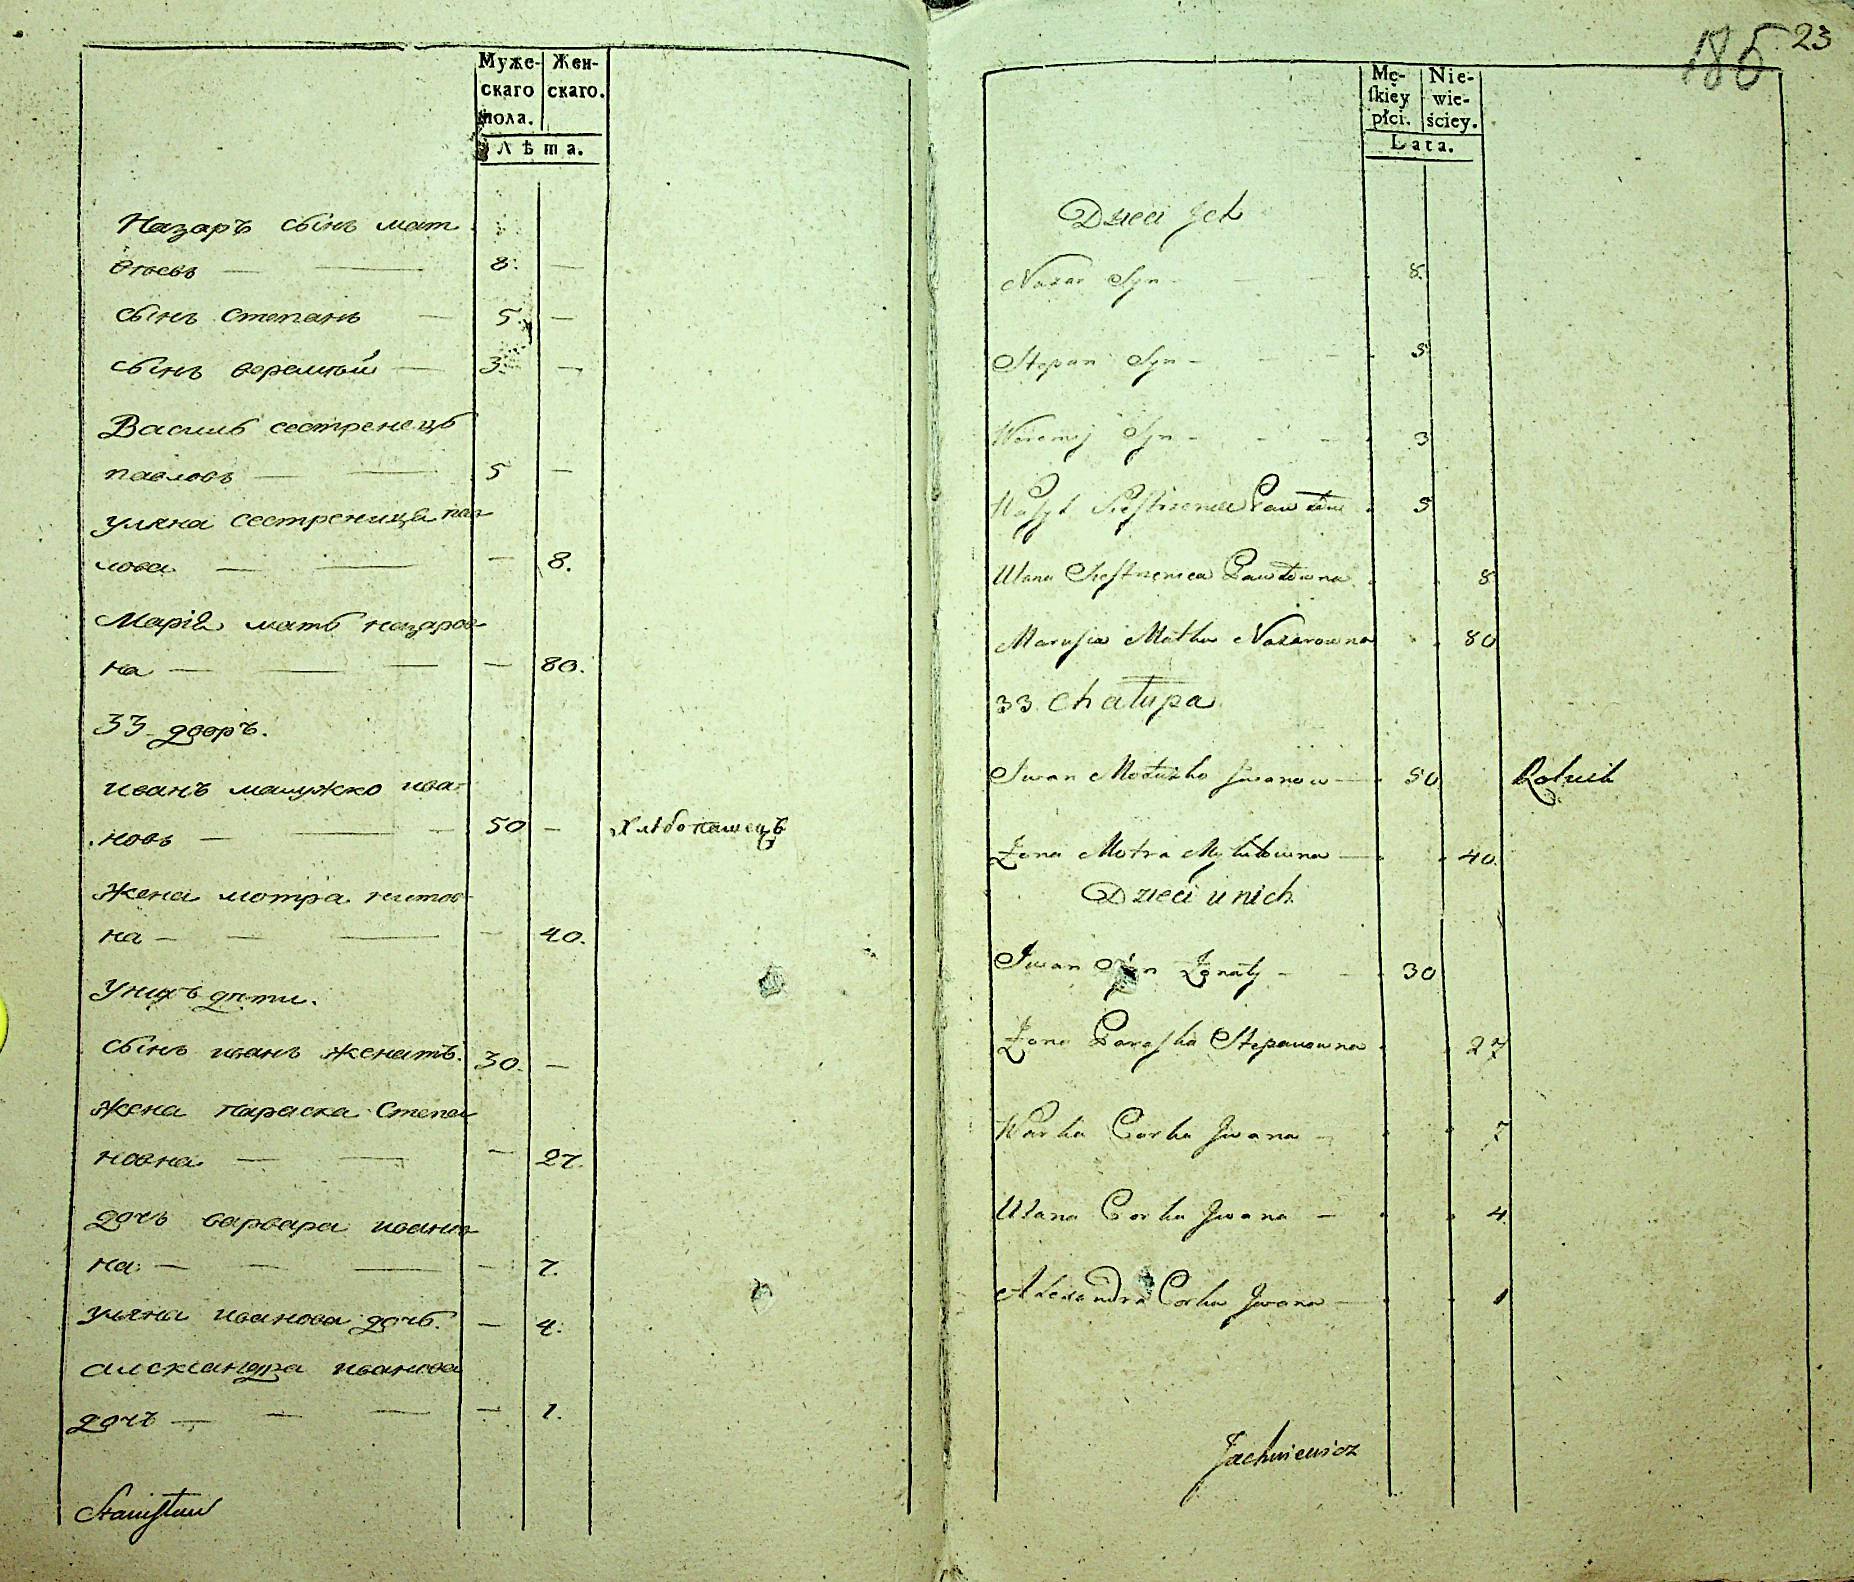 Муже- Жен-
скаго скаго.
пола.
Лѣта.
Назаръ сынъ мат
ѳѣевъ — — 8. —
сынъ степанъ — 5. —
сынъ веремѣй — 3. —
Василь сестренецъ
павловъ — — 5 —
уляна сестреница пав
лова — — — 8.
Марія мать назаров
на — — — — 80.
33 дворъ.
иванъ мацужко ива
новъ — — — 50 — хлѣбопашецъ
жена мотра китов
на — — — — 40.
У нихъ дѣти.
сынъ иванъ женатъ. 30. —
жена параска степа
новна — — — 27.
дочь варвара иванов
на — — — — 7.
уляна иванова дочь. — 4.
александра иванова
дочь — — — — 1.
Stanisław
186 23
Mę- Nie-
ſkiey wie-
płci. ściey.
Lata.
Dzieci Jch
Nazar Syn - - - 8.
Stepan Syn - - - 5
Weremij Syn - - - 3
Wasyl Siestrzeniec Pawłow 5
Ulana Siestrzenica Pawłowna 8
Marusia Matka Nazarowna 80
33 Chałupa
Iwan Jwanow — 50 Rolnik
Żona Motra Mykitowna — 40.
Dzieci u nich
Jwan Syn Żonaty - - 30
Żona Paraska Stepanowna 27
Warka Corka Jwana - 7
Ulana Corka Jwana — 4
Alexandra Corka Jwana — 1
Jachniewicz